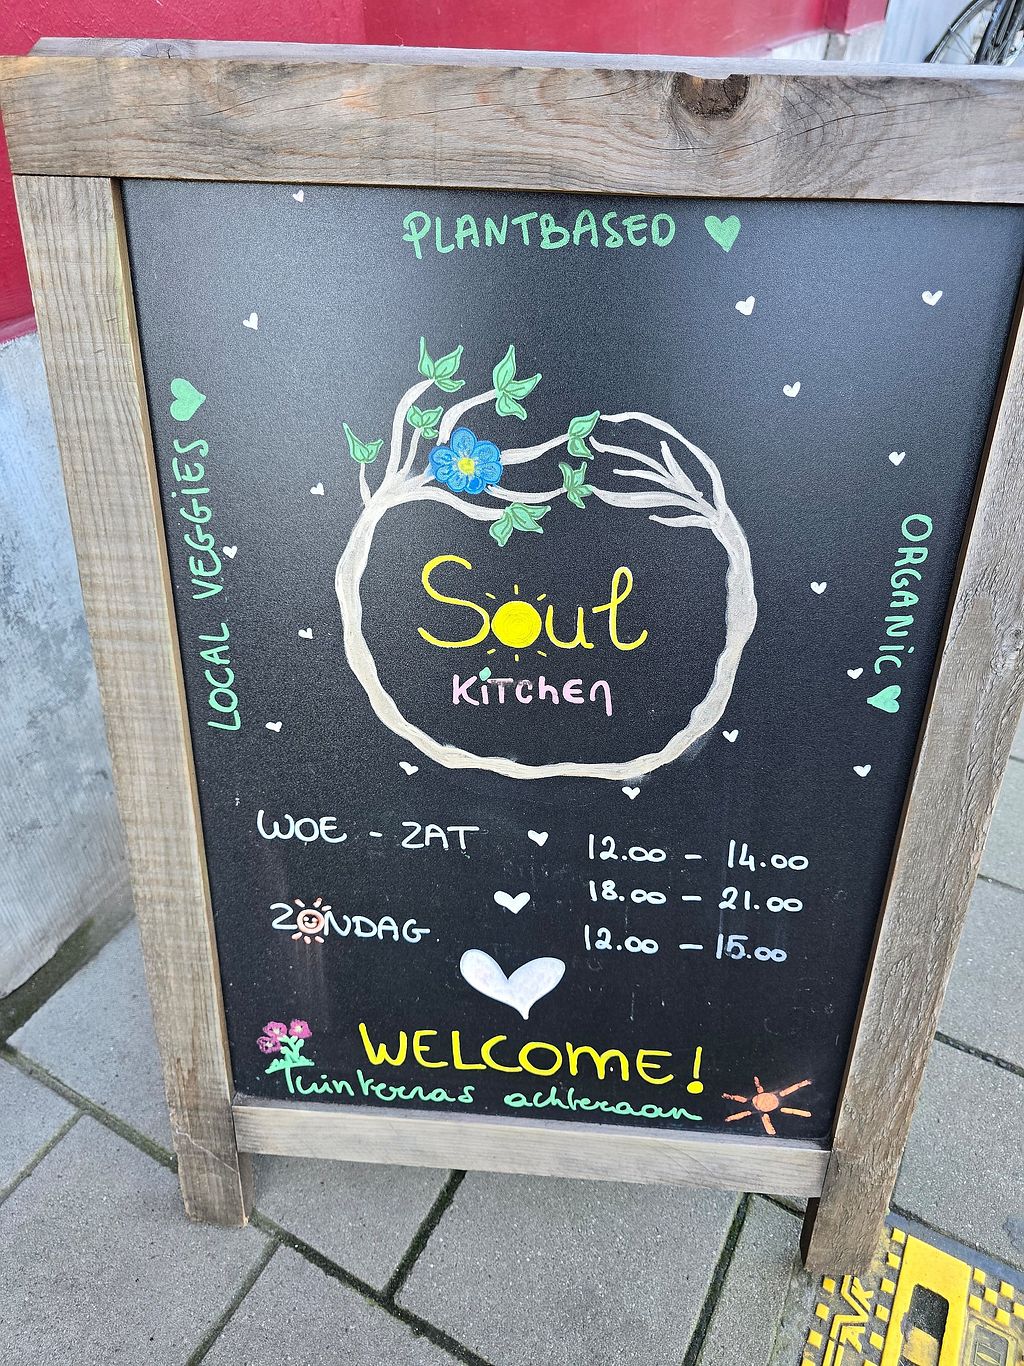 PLANTBASED
LOCAL VEGGiES
ORGANiC
Soul
KiTchen
WOE - ZAT 12.00 - 14.00
18.00 - 21.00
ZONDAG 12.00 - 15.00
WELCOME!
Tuinterras achteraan